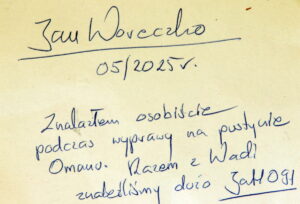 Jan Woreczko
05/2025r.
Znalazłem osobiście
podczas wyprawy na pustynie
Omanu. Razem z Wadi
znaleźliśmy dużo JaH 091